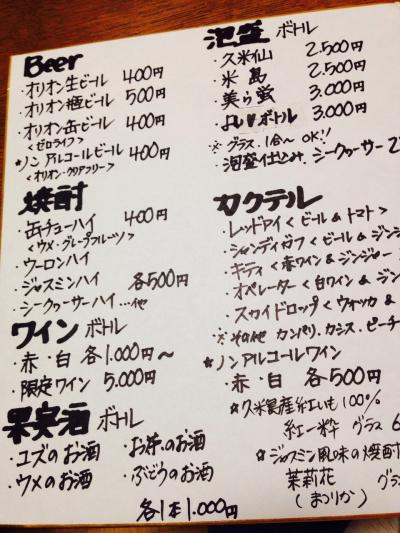 Beer
・オリオン生ビール 400円
・オリオン樽ビール 500円
・オリオン缶ビール 400円
＜ゼロライフ＞
★ノンアルコールビール 400円
＜オリオン・クリアフリー＞
焼酎
・缶チューハイ 400円
＜ウメ・グレープフルーツ＞
・ウーロンハイ
・ジャスミンハイ 各500円
・シークヮーサーハイ…他
ワイン ボトル
・赤・白 各1.000円～
・限定ワイン 5.000円
果実酒 ボトル
・ユズのお酒 ・お茶のお酒
・ウメのお酒 ・ぶどうのお酒
各1本1.000円
泡盛 ボトル
・久米仙 2.500円
・米島 2.500円
・美ら蛍 3.000円
ボトル 3.000円
※グラス.1合～OK!!
・泡盛仕込み.シークヮーサー 2
カクテル
・レッドアイ＜ビール&トマト＞
・シャンディガフ＜ビール&ジンジ
・キティ＜赤ワイン&ジンジャー
・オペレーター＜白ワイン&ジン
・スカイドロップ＜ウォッカ&
※その他 カンパリ.カシス.ピーチ
★ノンアルコールワイン
・赤・白 各500円
☆久米島産紅いも100%
紅一粋 グラス 6
☆ジャスミン風味の焼酎
茉莉花 グラ
(まつりか)